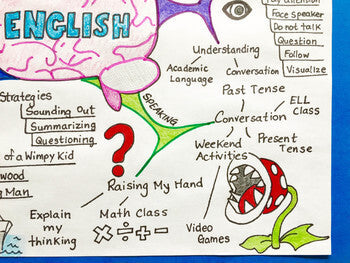 ENGLISH
Pay attention
Face Speaker
Do not talk
Question
Follow
Visualize
Understanding
Academic
Language
Conversation
Past Tense
SPEAKING
Conversation
ELL
Class
Present
Tense
Weekend
Activities
Video
Games
Strategies
Sounding Out
Summarizing
Questioning
of a Wimpy Kid
wood
g Man
?
Raising My Hand
Explain
my
thinking
Math Class
× ÷ + −